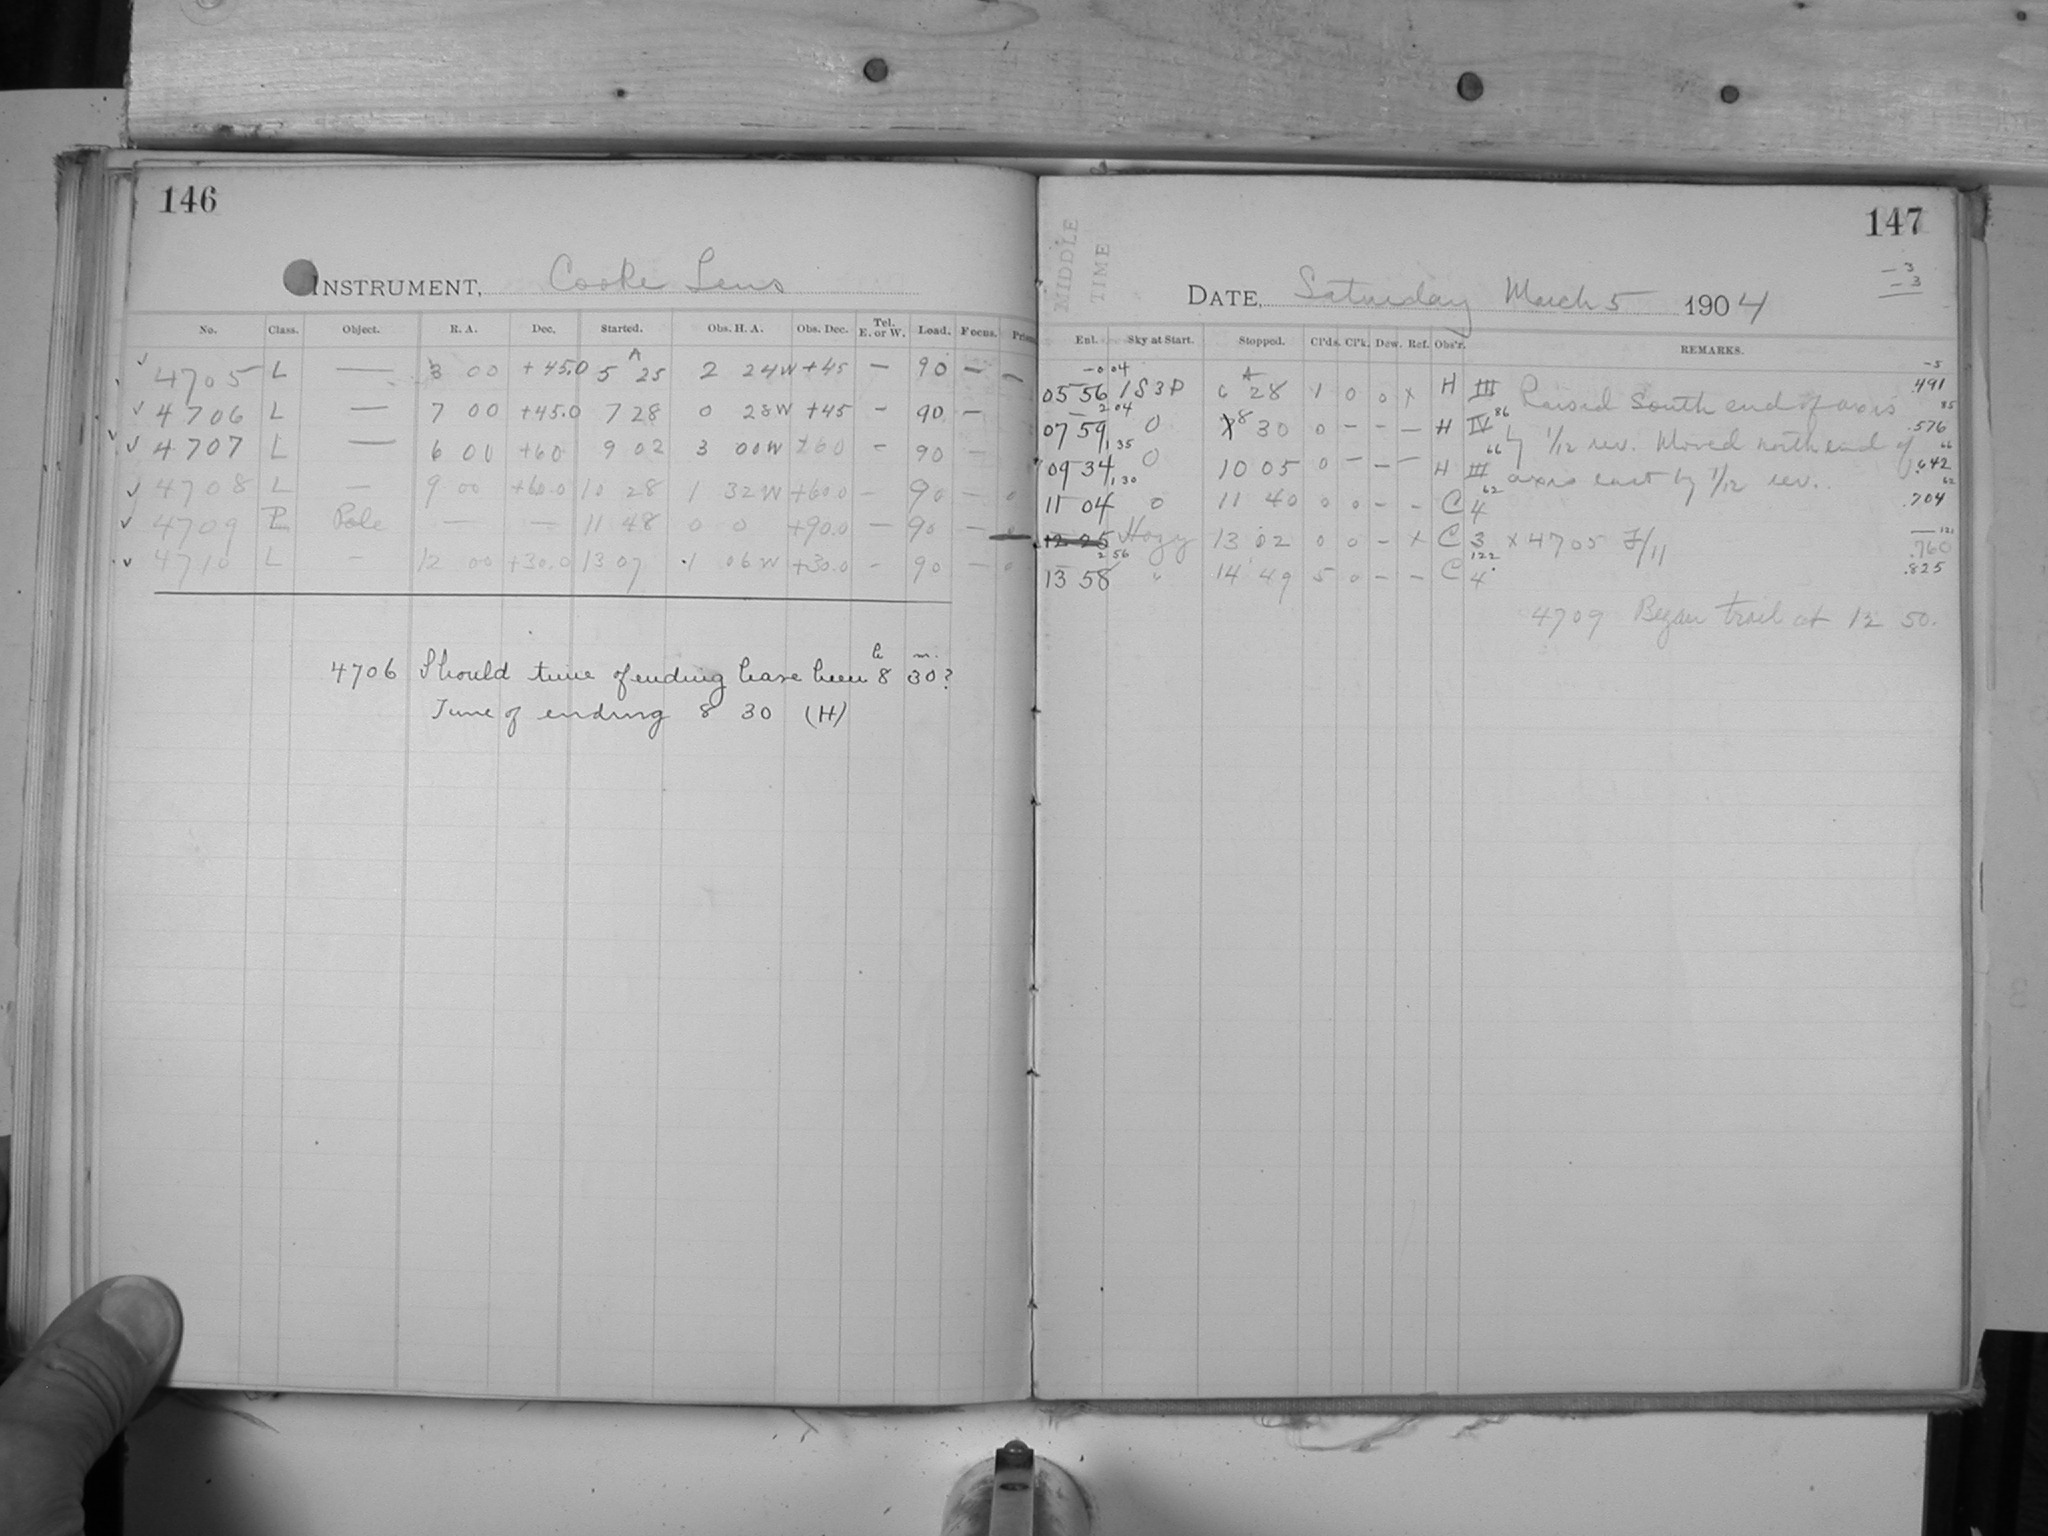 146
INSTRUMENT, Cooke Lens
No. Class. Object. R. A. Dec. Started. Obs. H. A. Obs. Dec. Tel. E. or W. Load. Focus. Prism
4705 L — 3 00 +45.0 5 25 2 24W +45 — 90 — —
4706 L — 7 00 +45.0 7 28 0 28W +45 - 90 —
4707 L — 6 00 +60 9 02 3 00W +60 - 90 —
4708 L — 9 00 +60.0 10 28 1 32W +60.0 - 90 - 0
4709 Pole — — 11 48 0 0 +90.0 — 90 — 0
4710 L - 12 00 +30.0 13 07 1 06W +30.0 - 90 - 0
4706 Should time of ending have been 8 h 30 m. ?
Time of ending 8 30 (H)
147
MIDDLE
TIME
- 3
- 3
DATE, Saturday March 5 1904
Ent. Sky at Start. Stopped. Cl'ds. Cl'k. Dew. Ref. Obs'r. REMARKS.
-0 04 -5
05 56 1S3P 6 28 1 0 0 x H III Raised South end of axis .491
2 04 86 85
07 59 0 8 30 0 - - — H IV by 1/12 rev. Moved north end of .576
1 35 66 66
09 34 0 10 05 0 - - - H III axis east by 1/12 rev. .642
1 30 62 62
11 04 0 11 40 0 0 - - C 4 .704
12 25 Hazy 13 02 0 0 - x C 3 x 4705 F/11 .760
2 56 122 121
13 58 " 14 49 5 0 - - C 4 .825
4709 Began trail at 12 50.